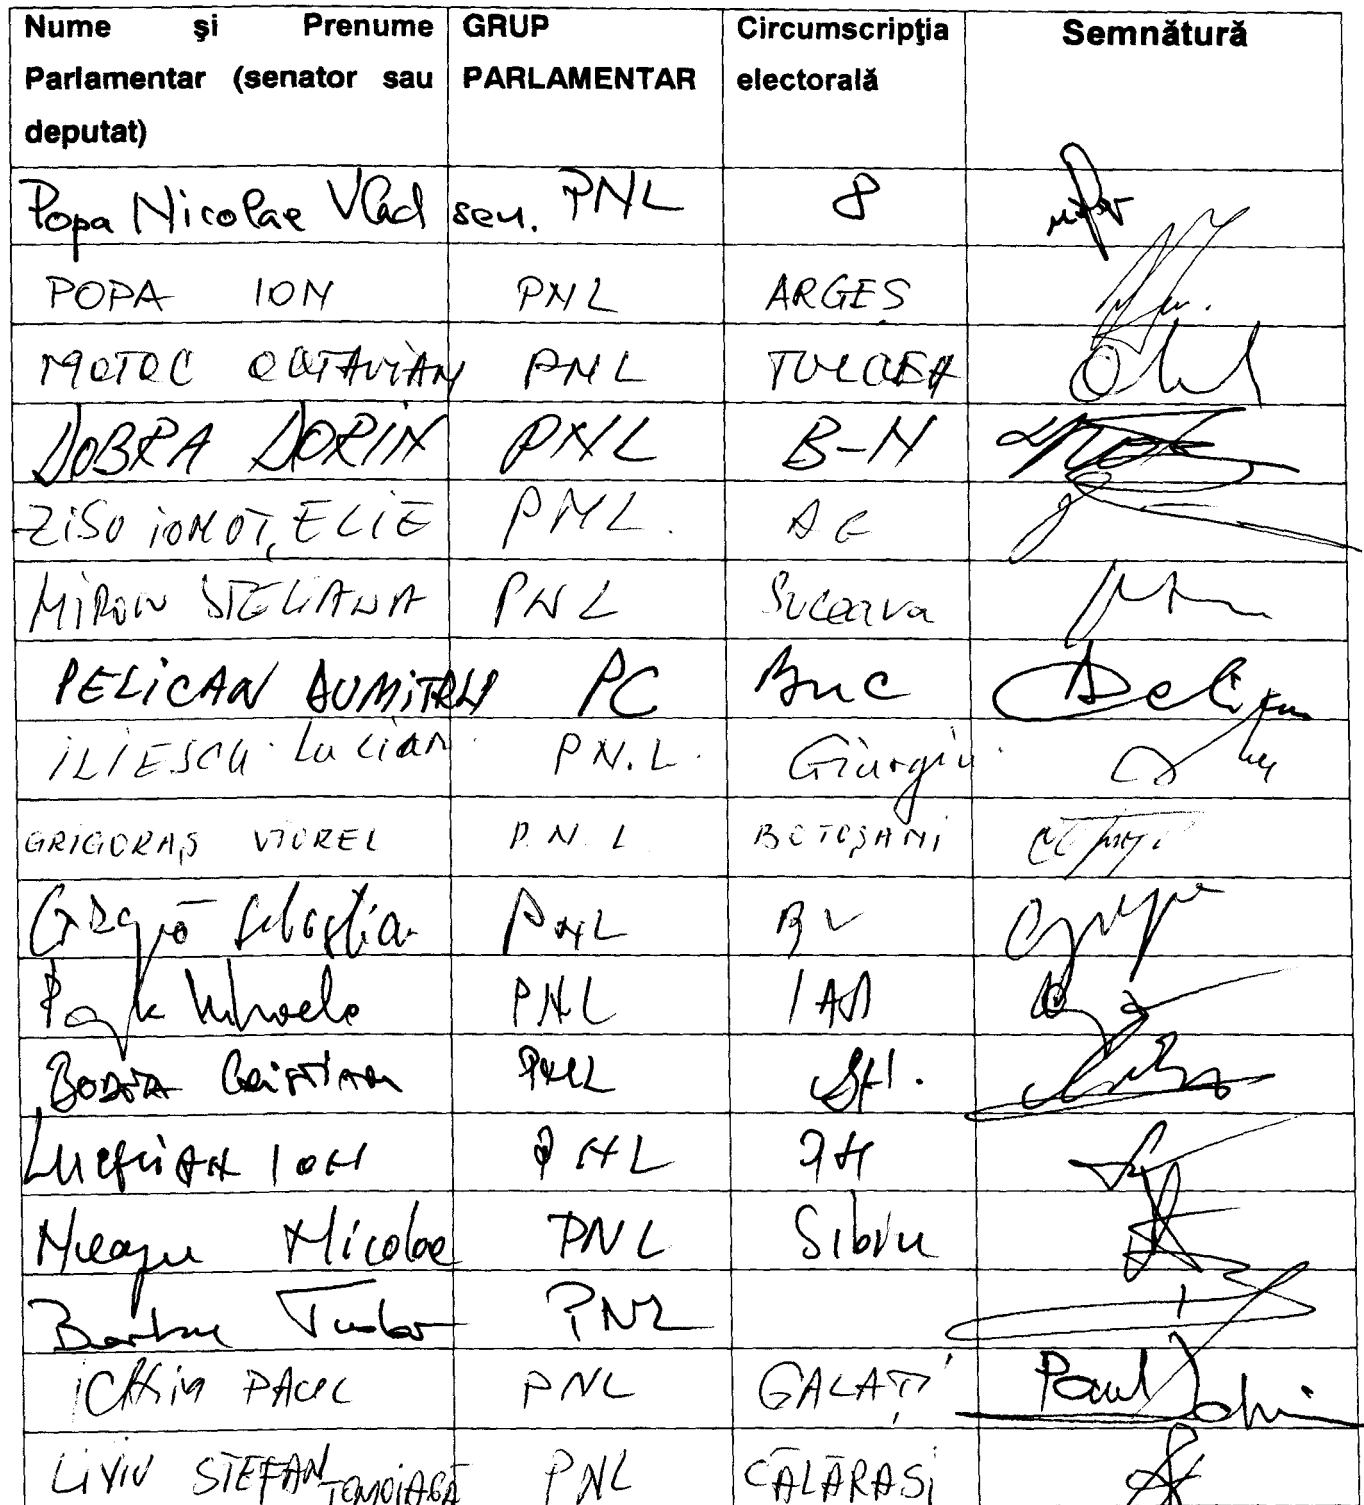 Nume și Prenume Parlamentar (senator sau deputat) | GRUP PARLAMENTAR | Circumscripţia electorală | Semnătură
Popa Nicolae Vlad sen. PNL 8
POPA ION PNL ARGEȘ
MOTOC OCTAVIAN PNL TULCEA
DOBRA DORIN PNL B-N
ZISU IONUȚ ELIE PNL.
MIRON STELIANA PNL Suceava
PELICAN DUMITRU PC Buc
ILIESCU Lucian. P.N.L. Giurgiu
GRIGORAȘ VIOREL P.N.L BOTOȘANI
PNL BV
PNL IAȘI
BODEA Cristian PNL
ION PNL
Neagu Nicolae PNL Sibiu
Barbu Tudor PNL
ICHIM PAUL PNL GALAȚI Paul Ichim
LIVIU STEFAN TOMOIAGĂ PNL CĂLĂRAȘI